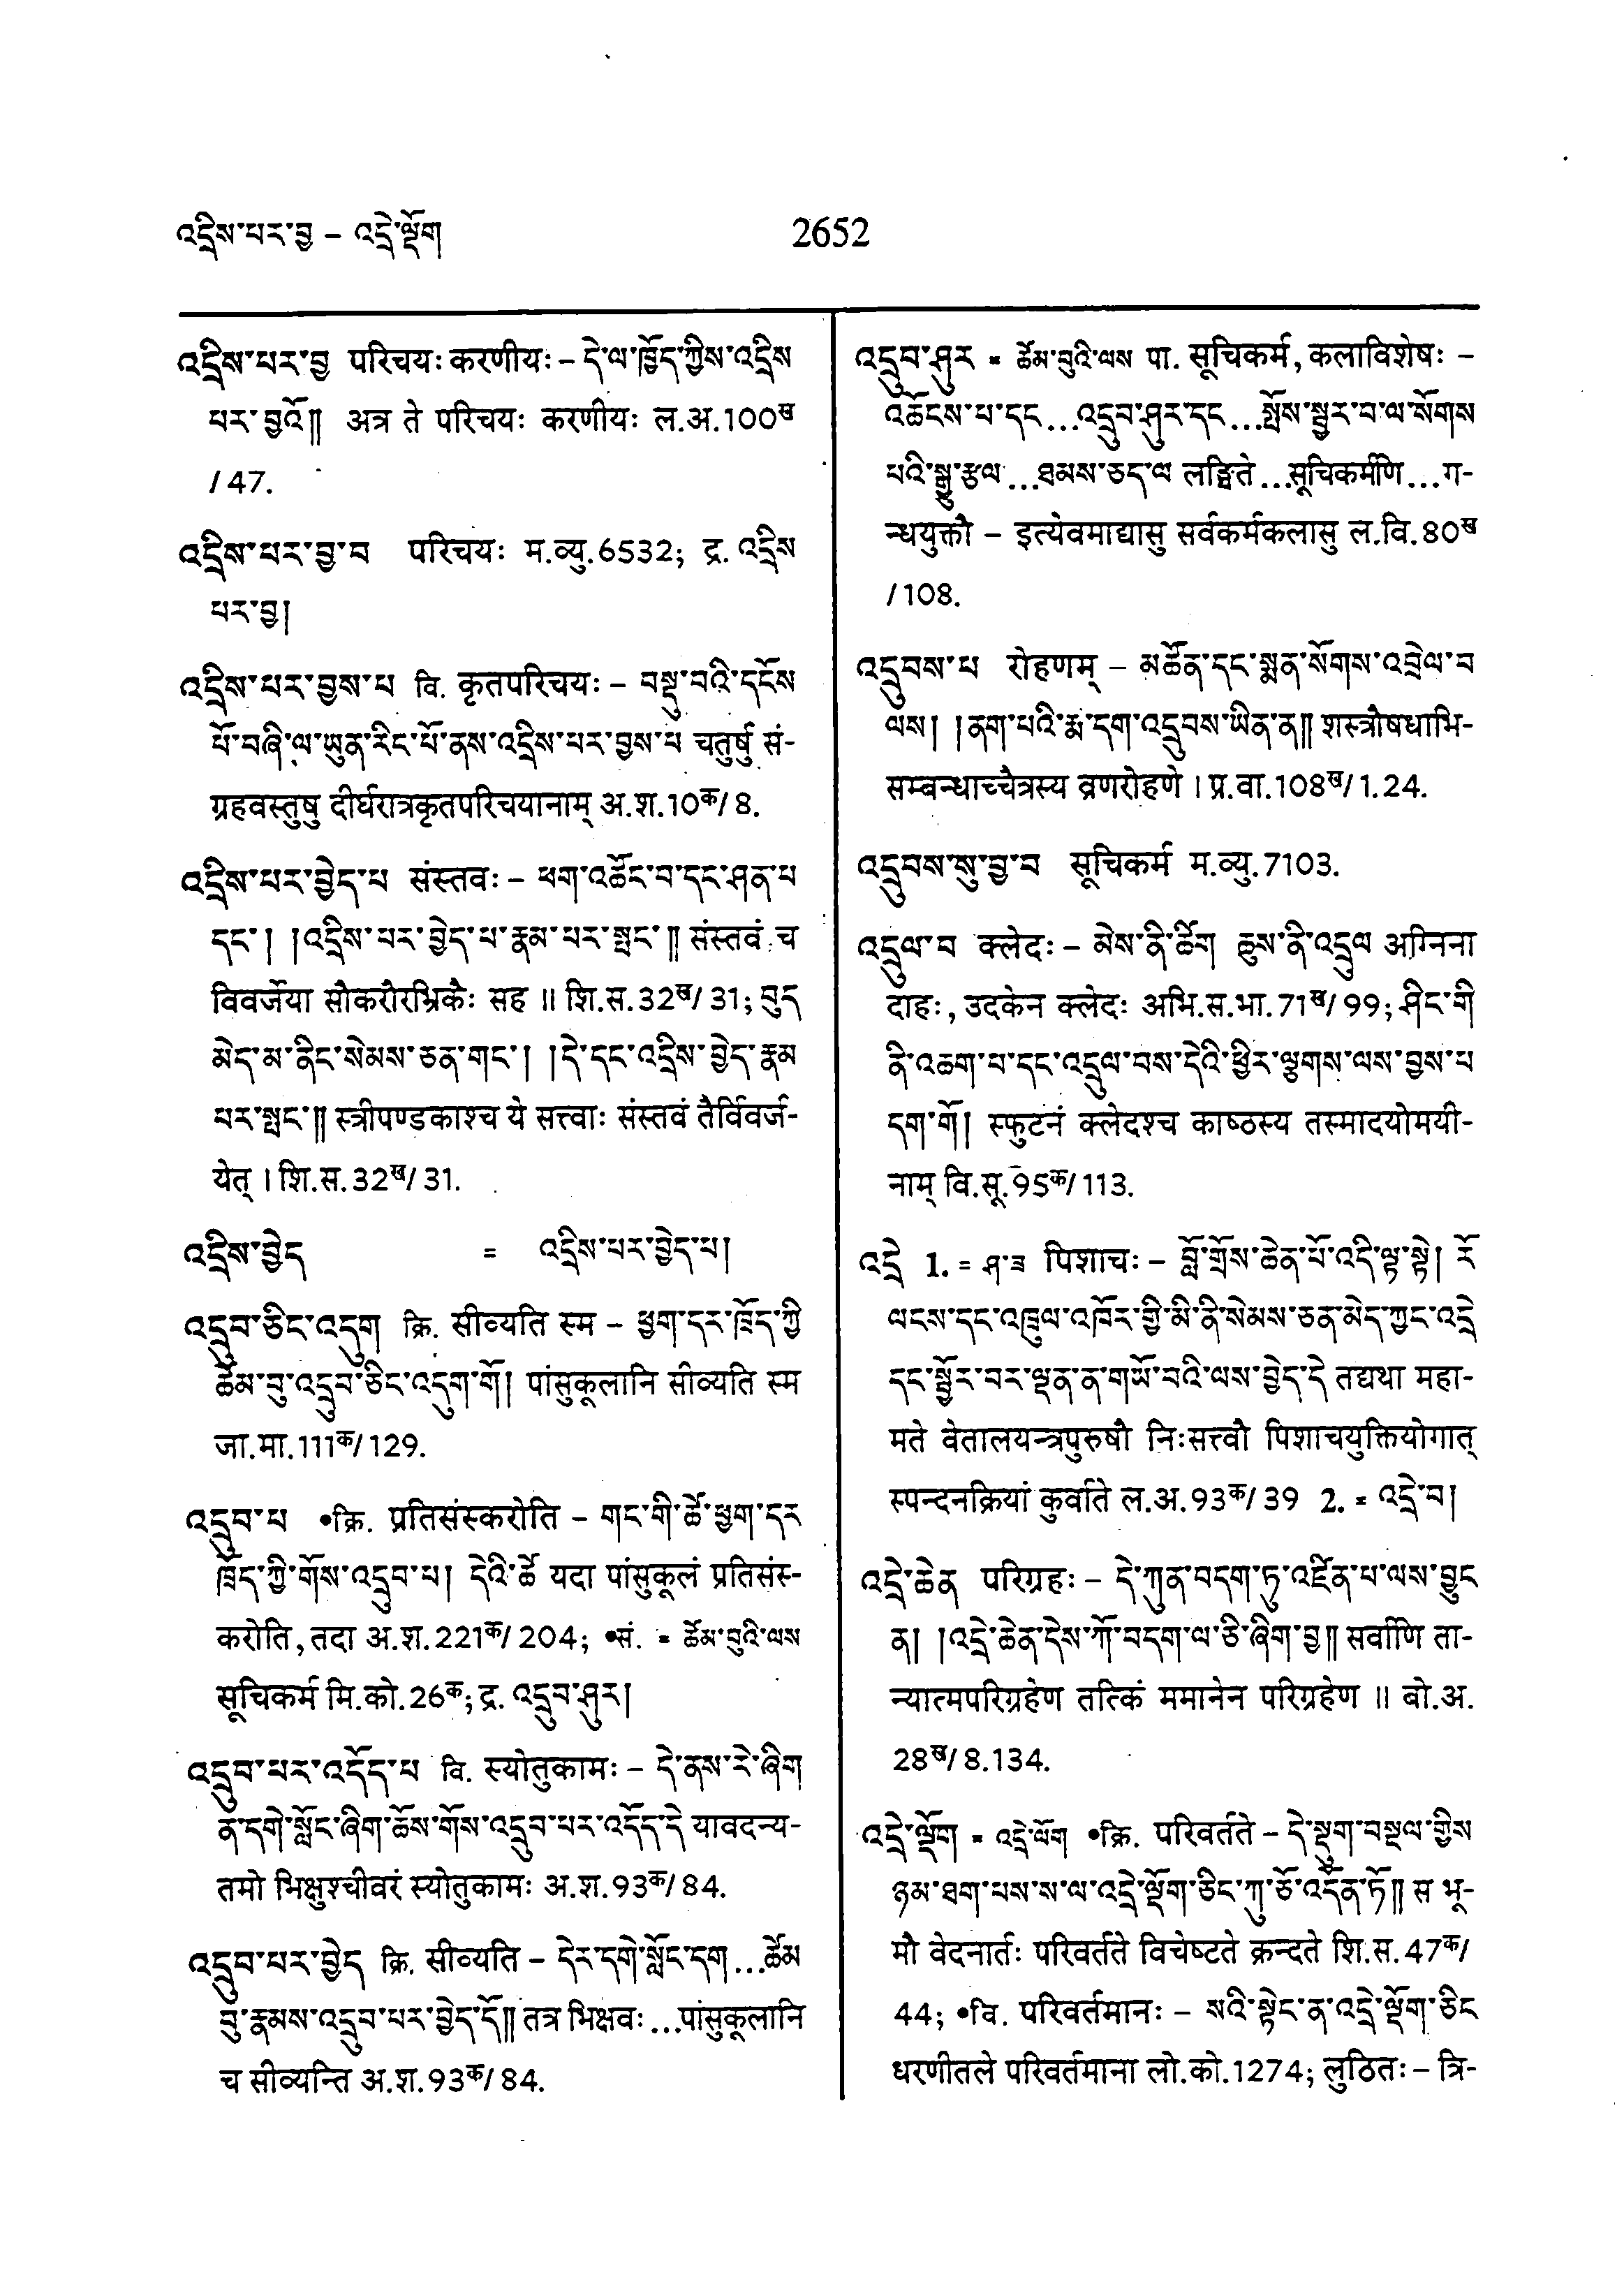 འདྲིས་པར་བྱ – འདྲེ་ལྡོག
2652
འདྲིས་པར་བྱ परिचयः करणीयः – དེ་ལ་ཁྱོད་ཀྱིས་འདྲིས
པར་བྱའོ༎ अत्र ते परिचयः करणीयः ल.अ.100ख
/47.
འདྲིས་པར་བྱ་བ परिचयः म.व्यु.6532; द्र. འདྲིས
པར་བྱ།
འདྲིས་པར་བྱས་པ वि. कृतपरिचयः – བསྡུ་བའི་དངོས
པོ་བཞི་ལ་ཡུན་རིང་པོ་ནས་འདྲིས་པར་བྱས་པ चतुर्षु सं-
ग्रहवस्तुषु दीर्घरात्रकृतपरिचयानाम् अ.श.10क/8.
འདྲིས་པར་བྱེད་པ संस्तवः – ཕག་འཚོང་བ་དང་ཤན་པ
དང་། །འདྲིས་པར་བྱེད་པ་རྣམ་པར་སྤང་༎ संस्तवं च
विवर्जेया सौकरौरभ्रिकैः सह ॥ शि.स.32ख/31; བུད
མེད་མ་ནིང་སེམས་ཅན་གང་། །དེ་དང་འདྲིས་བྱེད་རྣམ
པར་སྤང་༎ स्त्रीपण्डकाश्च ये सत्त्वाः संस्तवं तैर्विवर्ज-
येत् । शि.स.32ख/31.
འདྲིས་བྱེད = འདྲིས་པར་བྱེད་པ།
འདྲུབ་ཅིང་འདུག क्रि. सीव्यति स्म – ཕྱག་དར་ཁྲོད་ཀྱི
ཚེམ་བུ་འདྲུབ་ཅིང་འདུག་གོ། पांसुकूलानि सीव्यति स्म
जा.मा.111क/129.
འདྲུབ་པ •क्रि. प्रतिसंस्करोति – གང་གི་ཚེ་ཕྱག་དར
ཁྲོད་ཀྱི་གོས་འདྲུབ་པ། དེའི་ཚེ यदा पांसुकूलं प्रतिसंस्-
करोति, तदा अ.श.221क/204; •सं. = ཚེམ་བུའི་ལས
सूचिकर्म मि.को.26क; द्र. འདྲུབ་ཤུར།
འདྲུབ་པར་འདོད་པ वि. स्योतुकामः – དེ་ནས་རེ་ཞིག
ན་དགེ་སློང་ཞིག་ཆོས་གོས་འདྲུབ་པར་འདོད་དེ यावदन्य-
तमो भिक्षुश्चीवरं स्योतुकामः अ.श.93क/84.
འདྲུབ་པར་བྱེད क्रि. सीव्यति – དེར་དགེ་སློང་དག...ཚེམ
བུ་རྣམས་འདྲུབ་པར་བྱེད་དོ༎ तत्र भिक्षवः...पांसुकूलानि
च सीव्यन्ति अ.श.93क/84.
འདྲུབ་ཤུར = ཚེམ་བུའི་ལས पा. सूचिकर्म, कलाविशेषः –
འཆོངས་པ་དང...འདྲུབ་ཤུར་དང...སྤོས་སྦྱར་བ་ལ་སོགས
པའི་སྒྱུ་རྩལ...ཐམས་ཅད་ལ लङ्घिते...सूचिकर्मणि...ग-
न्धयुक्तौ – इत्येवमाद्यासु सर्वकर्मकलासु ल.वि.80ख
/108.
འདྲུབས་པ रोहणम् – མཚོན་དང་སྨན་སོགས་འབྲེལ་བ
ལས། །ནག་པའི་རྨ་དག་འདྲུབས་ཡིན་ན༎ शस्त्रौषधाभि-
सम्बन्धाच्चैत्रस्य व्रणरोहणे । प्र.वा.108ख/1.24.
འདྲུབས་སུ་བྱ་བ सूचिकर्म म.व्यु.7103.
འདྲུལ་བ क्लेदः – མེས་ནི་ཚིག ཆུས་ནི་འདྲུལ अग्निना
दाहः, उदकेन क्लेदः अभि.स.भा.71ख/99; ཤིང་གི
ནི་འཆག་བ་དང་འདྲུལ་བས་དེའི་ཕྱིར་ལྕགས་ལས་བྱས་པ
དག་གོ། स्फुटनं क्लेदश्च काष्ठस्य तस्मादयोमयी-
नाम् वि.सू.95क/113.
འདྲེ 1. = ཤ་ཟ पिशाचः – བློ་གྲོས་ཆེན་པོ་འདི་ལྟ་སྟེ། རོ
ལངས་དང་འཁྲུལ་འཁོར་གྱི་མི་ནི་སེམས་ཅན་མེད་ཀྱང་འདྲེ
དང་སྦྱོར་བར་ལྡན་ན་གཡོ་བའི་ལས་བྱེད་དེ तद्यथा महा-
मते वेतालयन्त्रपुरुषौ निःसत्त्वौ पिशाचयुक्तियोगात्
स्पन्दनक्रियां कुर्वाते ल.अ.93क/39 2. = འདྲེ་བ།
འདྲེ་ཆེན परिग्रहः – དེ་ཀུན་བདག་ཏུ་འཛིན་པ་ལས་བྱུང
ན། །འདྲེ་ཆེན་དེས་ཀོ་བདག་ལ་ཅི་ཞིག་བྱ༎ सर्वाणि ता-
न्यात्मपरिग्रहेण तत्किं ममानेन परिग्रहेण ॥ बो.अ.
28ख/8.134.
འདྲེ་ལྡོག = འདྲེ་ལོག •क्रि. परिवर्तते – དེ་སྡུག་བསྔལ་གྱིས
ཉམ་ཐག་པས་ས་ལ་འདྲེ་ལྡོག་ཅིང་ཀུ་ཅོ་འདོན་ཏོ༎ स भू-
मौ वेदनार्तः परिवर्तते विचेष्टते क्रन्दते शि.स.47क/
44; •वि. परिवर्तमानः – སའི་སྟེང་ན་འདྲེ་ལྡོག་ཅིང
धरणीतले परिवर्तमाना लो.को.1274; लुठितः – त्रि-